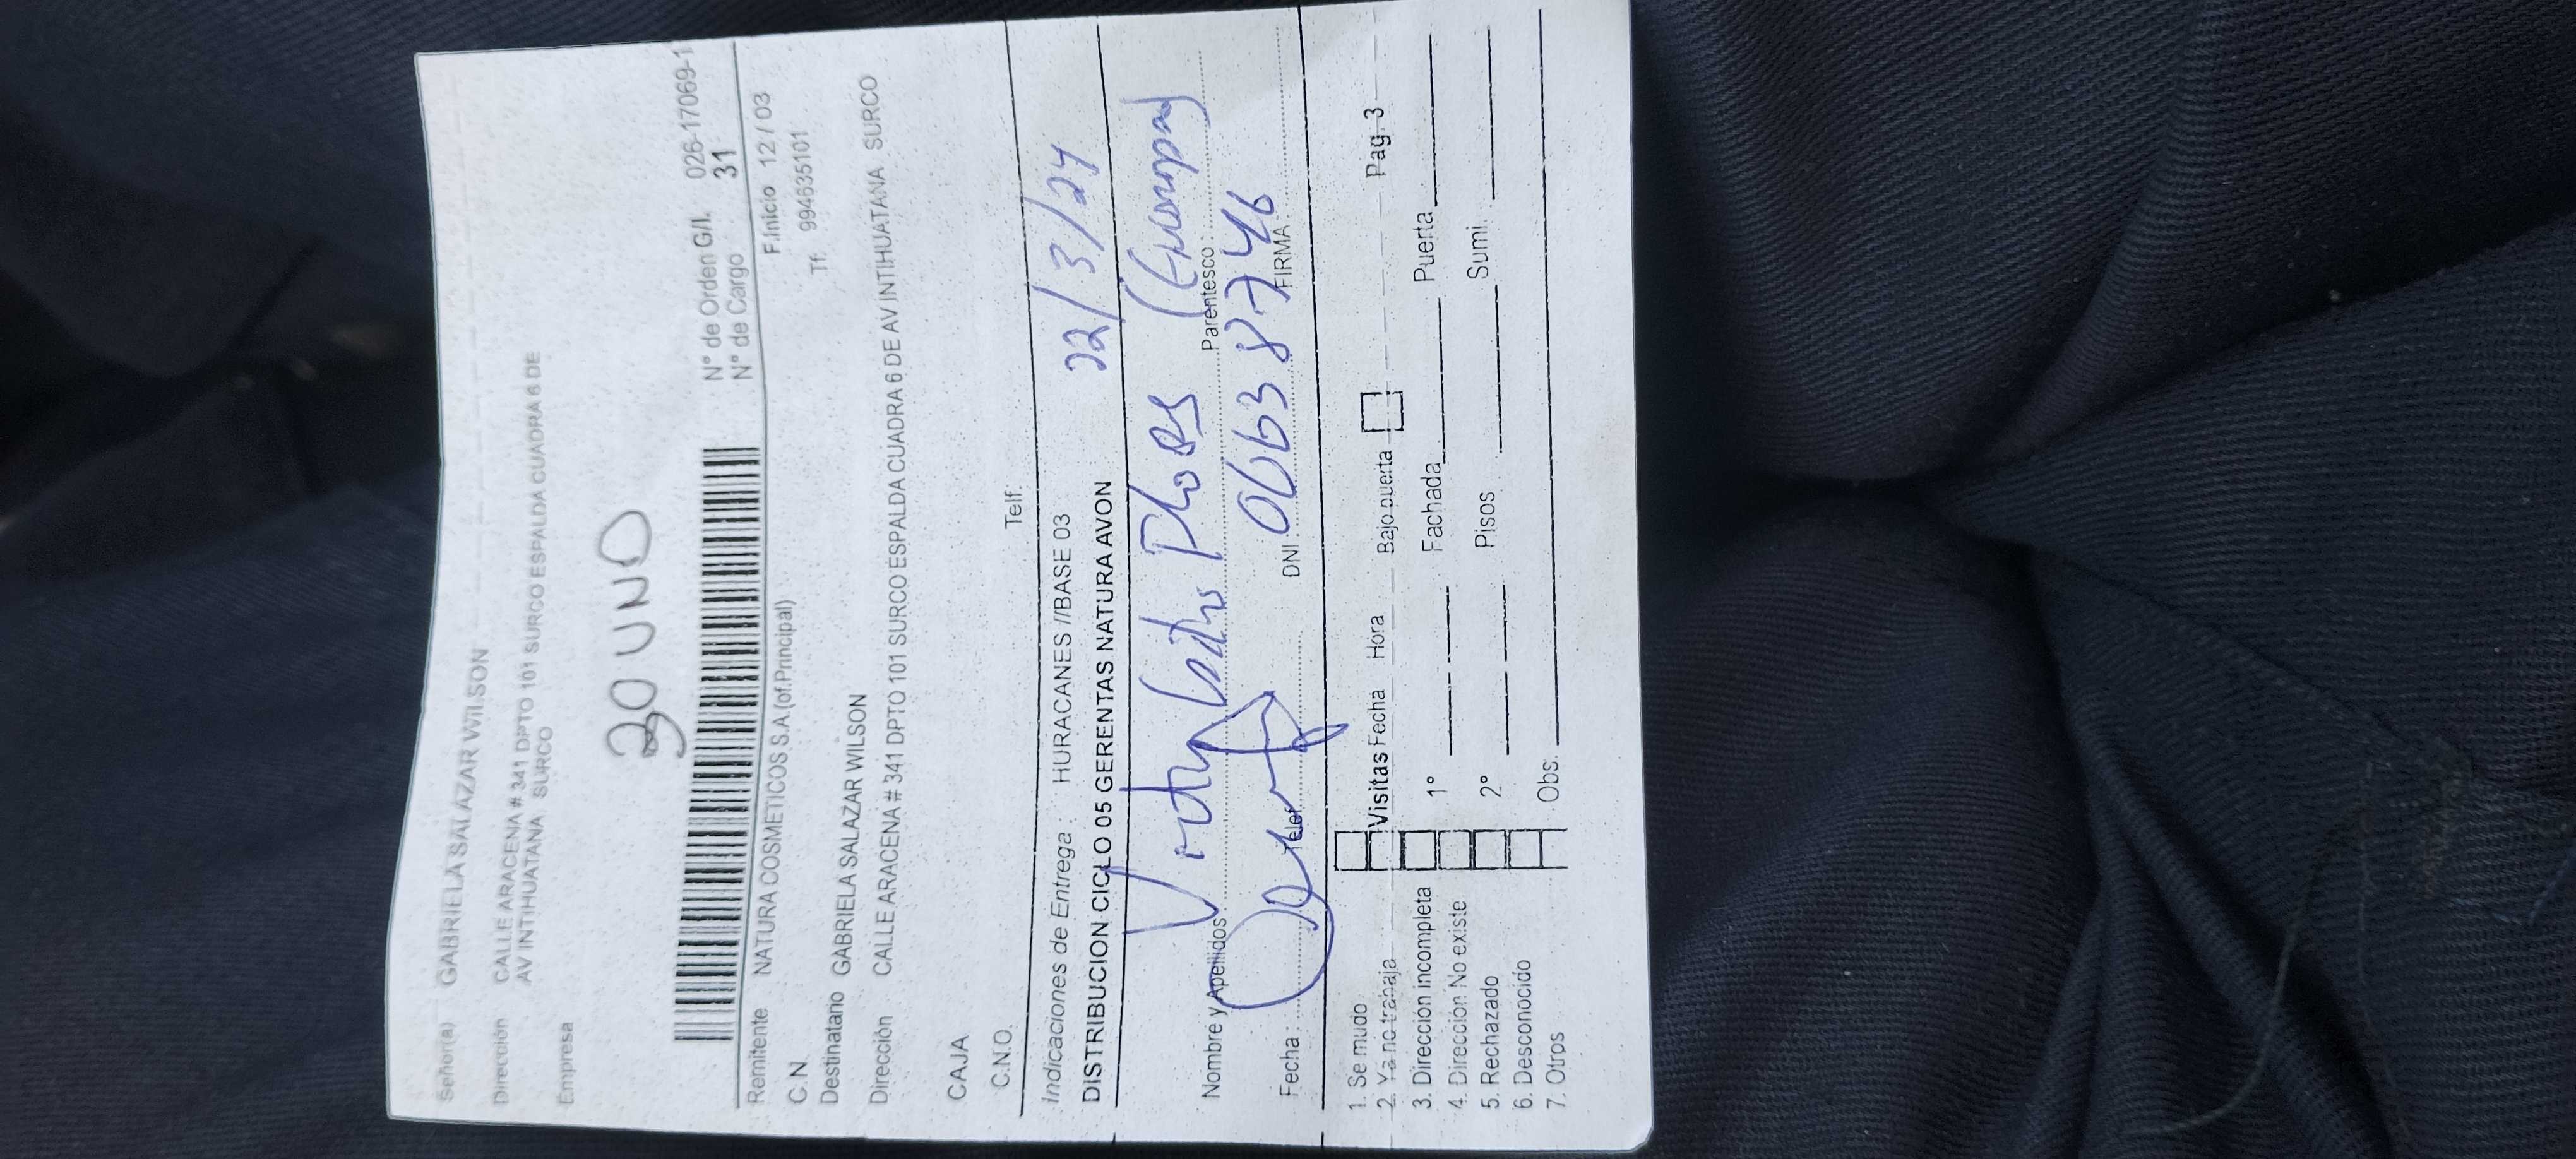 Señor(a) GABRIELA SALAZAR WILSON
Dirección CALLE ARACENA # 341 DPTO 101 SURCO ESPALDA CUADRA 6 DE
AV INTIHUATANA SURCO
Empresa
30 UND
N° de Orden G/I. 026-17069-1
N° de Cargo 31
Remitente NATURA COSMETICOS S.A.(of.Principal) F.Inicio 12 / 03
C.N Tf. 994635101
Destinatario GABRIELA SALAZAR WILSON
Dirección CALLE ARACENA # 341 DPTO 101 SURCO ESPALDA CUADRA 6 DE AV INTIHUATANA SURCO
CAJA
C.N.O. Telf.
Indicaciones de Entrega : HURACANES //BASE 03
DISTRIBUCION CICLO 05 GERENTAS NATURA AVON
22/3/24
Nombre y Apellidos Parentesco
Fecha : Telef DNI 06638746 FIRMA
1. Se mudo
2. Ya no trabaja Visitas Fecha Hora Bajo puerta Pag. 3
3. Dirección incompleta 1° Fachada Puerta
4. Dirección No existe
5. Rechazado 2° Pisos Sumi.
6. Desconocido
7. Otros Obs.